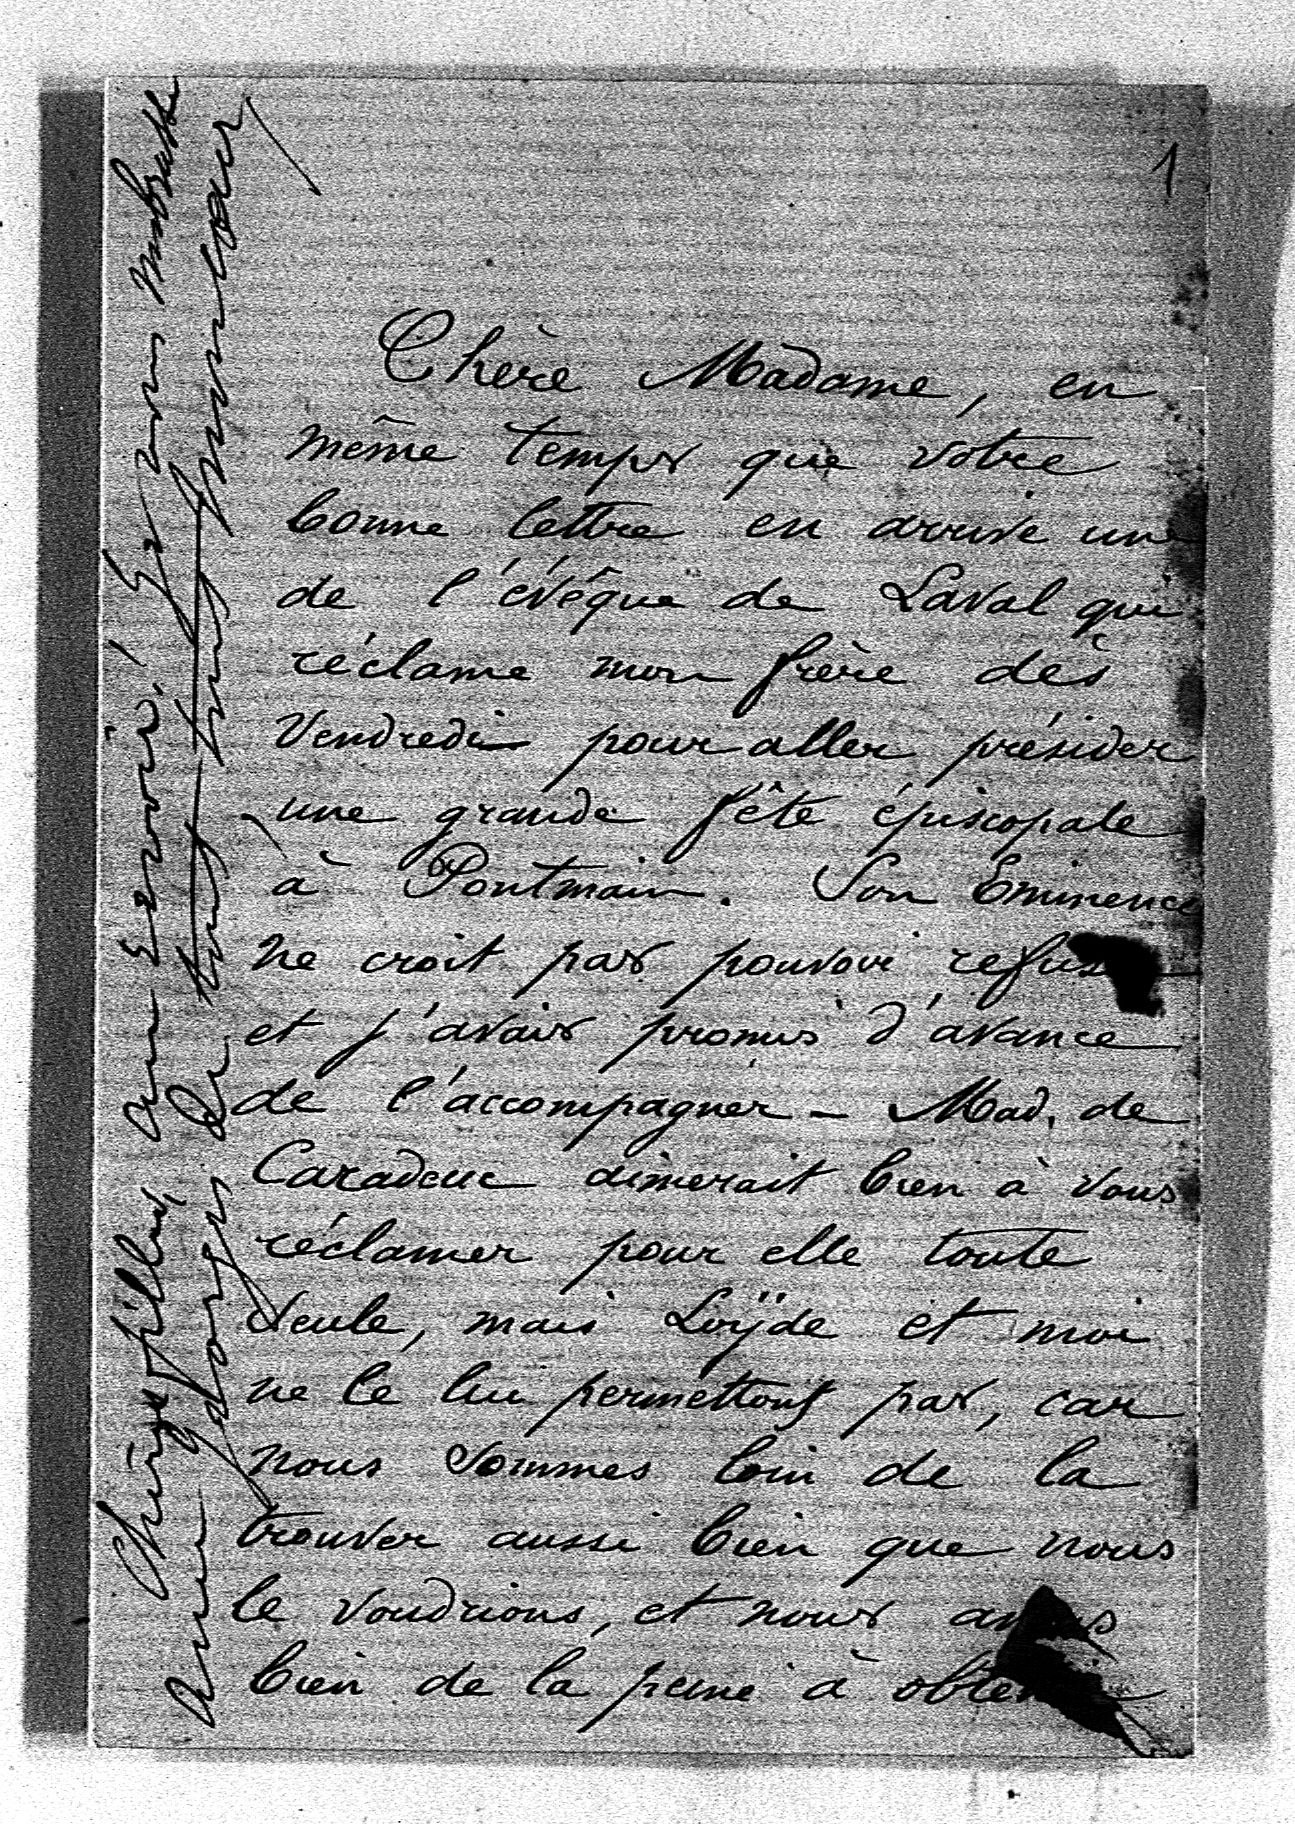 1
Chère Madame, en
même temps que votre
bonne lettre en arrive une
de l'évêque de Laval qui
réclame mon frère dès
Vendredi pour aller présider
une grande fête épiscopale
à Pontmain. Son Eminence
ne croit pas pouvoir refus
et j'avais promis d'avance
de l'accompagner - Mad. de
Caradeuc aimerait bien à vous
réclamer pour elle toute
seule, mais Loÿde et moi
ne le lui permettons pas, car
nous sommes loin de la
trouver aussi bien que nous
le voudrions, et nous avons
bien de la peine à obtenir
Chère fille, au revoir! Je vous embrasse
de tout tout mon cœur